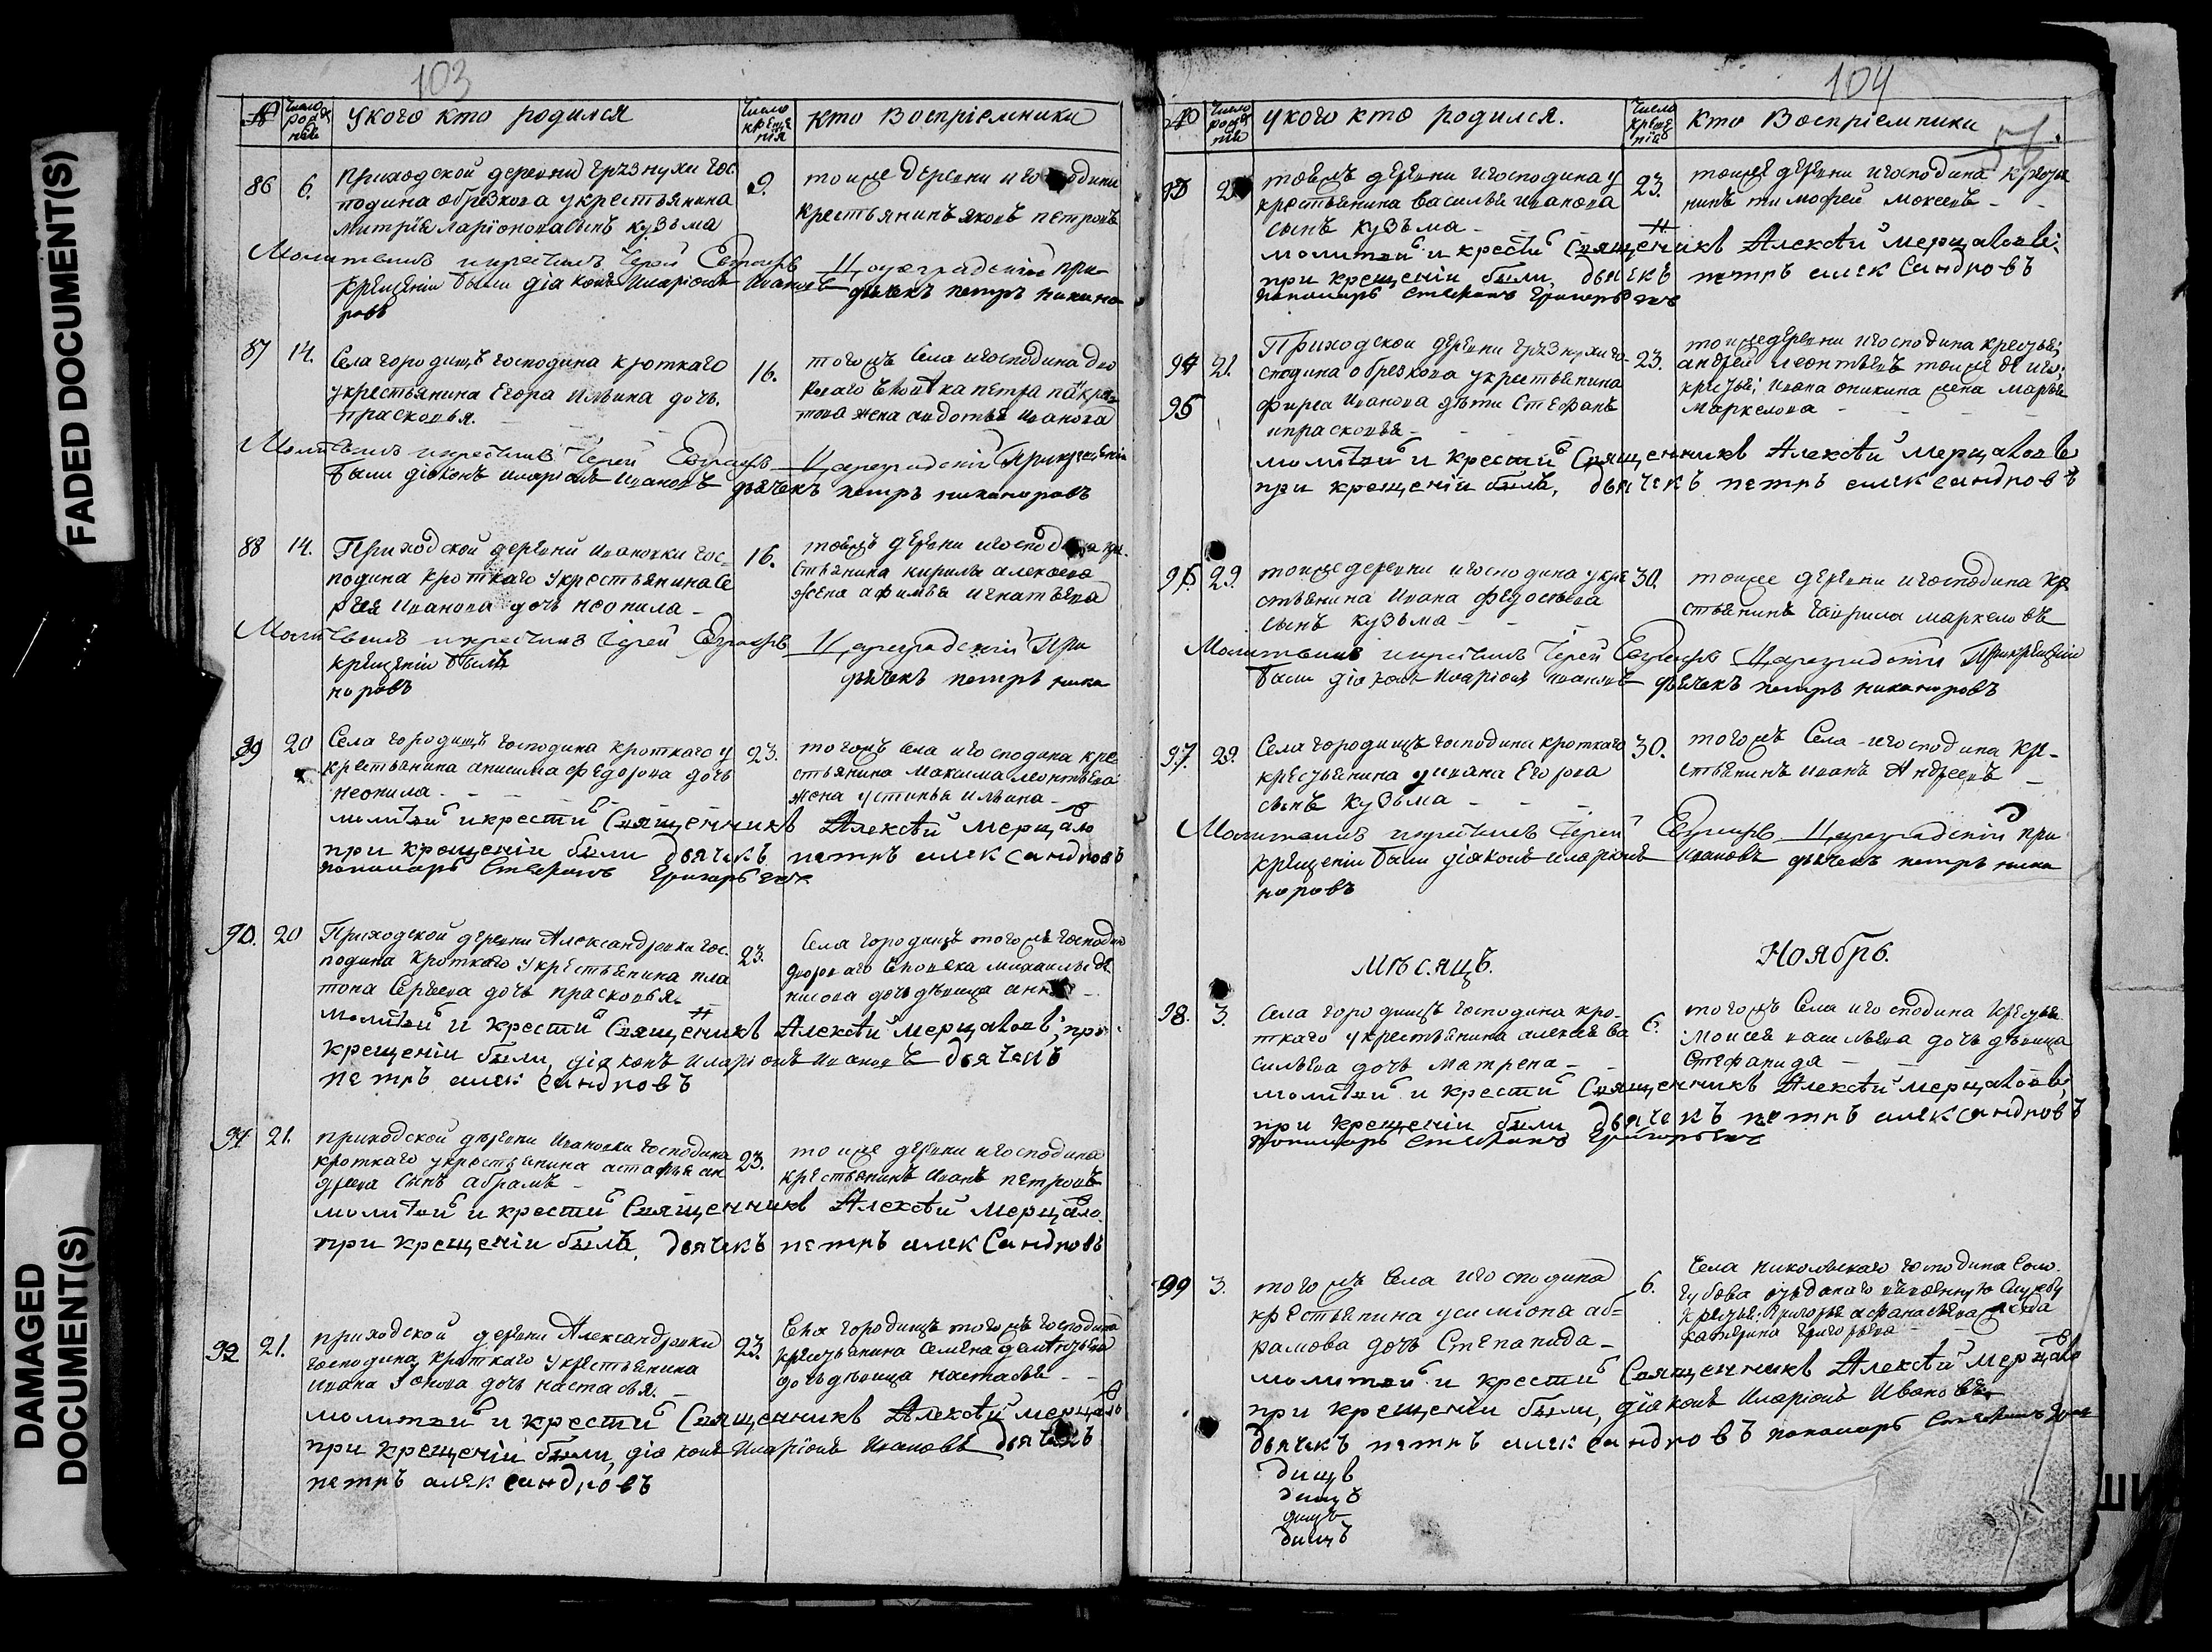 FADED DOCUMENT(S)
DAMAGED
DOCUMENT(S)
103
№ Число рожде нія У кого кто родился Число креще нія Кто Воспріемники
86 6. Приходской деревни Грязнухи гос
подина обрезкова у крестьянина
митрія ларіонова сынъ кузьма
9. тоиже деревни и господина
крестьянинъ яковъ петровъ
Молитвилъ и крестилъ Іерей Евграфъ Цареградскій при
крещеніи были діаконъ иларіонъ ивановъ дьячекъ петръ никано
ровъ
87 14. Села городищъ господина кроткаго
у крестьянина Егора ильина дочь
прасковья.
16. тогожъ села и господина дво
роваго человека петра панкра
това жена авдотья иванова
Молитвилъ и крестилъ Іерей Евграфъ Цареградскій при крещеніи
были діаконъ иларіонъ ивановъ дьячекъ петръ никаноровъ
88 14. Приходской деревни ивановки гос
подина кроткаго у крестьянина се
ргея иванова дочь неонила
16. тоежъ деревни и господина кре
стьянина кирилы алексеева
жена афимья игнатьева
Молитвилъ и крестилъ Іерей Евграфъ Цареградскій При
крещеніи былъ дьячекъ петръ ника
норовъ
89 20 Села городищъ господина кроткаго у
крестьянина анисима федорова дочь
неонила
23. тогожъ села и господина кре
стьянина Максима леонтьева
жена устинья ильина
молитвилъ и крестилъ Священникъ Алексѣй мерцаловъ
при крещеніи были дьячекъ петръ александровъ
пономарь Стефанъ Григорьевъ
90. 20 Приходской деревни Александровки гос
подина кроткаго у крестьянина пла
тона Сергеева дочь прасковья
23. Села городищъ тогожъ господина
двороваго человека михаилы де
нисова дочь девица анна
молитвилъ и крестилъ Священникъ Алексѣй мерцаловъ, при
крещеніи были, діаконъ иларіонъ ивановъ дьячекъ
петръ александровъ
91 21. приходской деревни ивановки господина
кроткаго у крестьянина астафья ан
дреева сынъ абрамъ
23. тоиже деревни и господина
крестьянинъ иванъ петровъ
молитвилъ и крестилъ Священникъ Алексѣй мерцало
при крещеніи былъ, дьячекъ петръ александровъ
92 21. приходской деревни Александровки
господина кроткаго у крестьянина
ивана дочь настасья
23. Села городищъ тогожъ господина
крестьянина семена
дочь девица настасья
молитвилъ и крестилъ Священникъ Алексѣй мерцало
при крещеніи были, діаконъ иларіонъ ивановъ дьячекъ
петръ александровъ
104
№ Число рожде нія У кого кто родился. Число креще нія Кто Воспріемники
93 тоежъ деревни и господина у
крестьянина василья иванова
сынъ кузьма
23. тоиже деревни и господина крестья
нинъ тимофей мокеевъ
молитвилъ и крестилъ Священикъ Алексѣй мерцаловъ;
при крещеніи были, дьячекъ петръ александровъ
пономарь Стефанъ Григорьевъ
94 21. Приходской деревни грязнухи го
сподина обрезкова у крестьянина
95 фирса иванова дѣти Стефанъ
и прасковья
23. тоиже деревни и господина крестья;
андрей леонтьевъ тоиже де и го;
крестья; ивана оникина жена марья
маркелова
молитвилъ и крестилъ Священникъ Алексѣй мерцаловъ
при крещеніи былъ, дьячекъ петръ александровъ
96. 29. тоиже деревни и господина у кре
стьянина ивана федосеева
сынъ кузьма
30. тоиже деревни и господина кре
стьянинъ гаврила маркеловъ
Молитвилъ и крестилъ Іерей Евграфъ Цареградскій При крещеніи
были діаконъ иларіонъ ивановъ дьячекъ петръ никаноровъ
97. 29. Села городищъ господина кроткаго
крестьянина у ивана Егорова
сынъ кузьма
30. тогожъ Села и господина кре
стьянинъ иванъ Андреевъ
Молитвилъ и крестилъ Іерей Евграфъ Цареградскій при
крещеніи были діаконъ иларіонъ ивановъ дьячекъ петръ ника
норовъ
Мѣсяцъ. Ноябрь.
98. 3. Села городищъ господина кро
ткаго у крестьянина алексея ва
сильева дочь матрена
6. тогожъ Села и господина крестья
моисея васильева дочь девица
Стефанида
молитвилъ и крестилъ Священникъ Алексѣй мерцаловъ;
при крещеніи были дьячекъ петръ александровъ
пономарь Стефанъ Григорьевъ
99 3. тогожъ Села и господина
крестьянина у симіона аб=
рамова дочь Степанида
6. Села никольскаго господина Соло
губова отданаго в военную службу
крестья. Григорья афанасьева жена
катерина григорьева
молитвилъ и крестилъ Священникъ Алексѣй мерцало
при крещеніи были, діаконъ иларіонъ Ивановъ
дьячекъ петръ александровъ пономарь Стефанъ
дищъ
дищъ
дищъ
дищъ